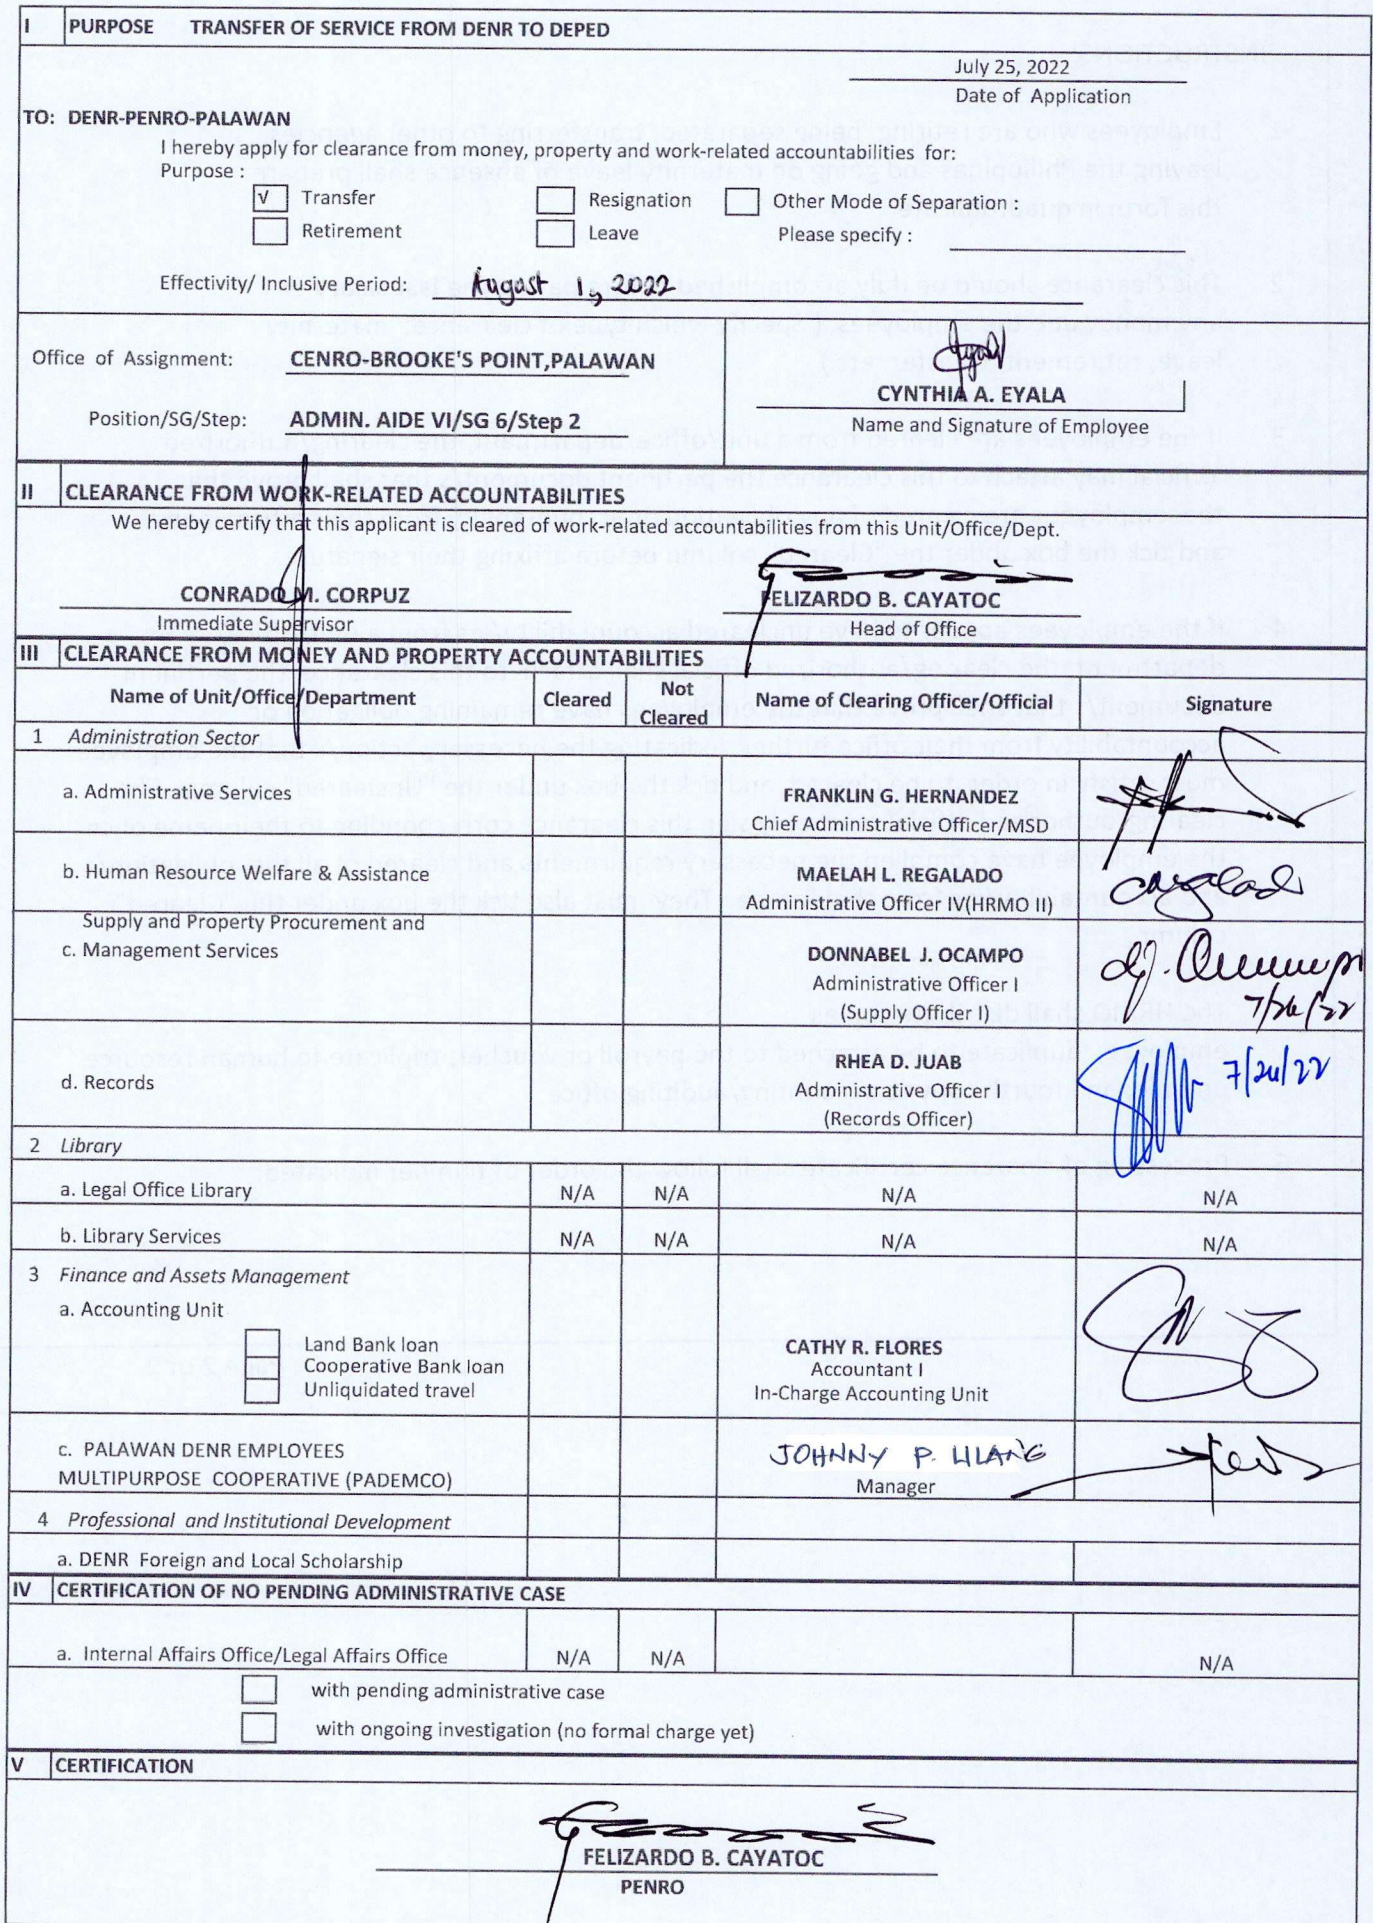 I PURPOSE TRANSFER OF SERVICE FROM DENR TO DEPED
July 25, 2022
Date of Application
TO: DENR-PENRO-PALAWAN
I hereby apply for clearance from money, property and work-related accountabilities for:
Purpose :
√ Transfer Resignation Other Mode of Separation :
Retirement Leave Please specify :
Effectivity/ Inclusive Period: August 1, 2022
Office of Assignment: CENRO-BROOKE'S POINT,PALAWAN
CYNTHIA A. EYALA
Position/SG/Step: ADMIN. AIDE VI/SG 6/Step 2 Name and Signature of Employee
II CLEARANCE FROM WORK-RELATED ACCOUNTABILITIES
We hereby certify that this applicant is cleared of work-related accountabilities from this Unit/Office/Dept.
CONRADO M. CORPUZ FELIZARDO B. CAYATOC
Immediate Supervisor Head of Office
III CLEARANCE FROM MONEY AND PROPERTY ACCOUNTABILITIES
Name of Unit/Office/Department Cleared Not Cleared Name of Clearing Officer/Official Signature
1 Administration Sector
a. Administrative Services FRANKLIN G. HERNANDEZ
Chief Administrative Officer/MSD
b. Human Resource Welfare & Assistance MAELAH L. REGALADO
Administrative Officer IV(HRMO II)
Supply and Property Procurement and
c. Management Services DONNABEL J. OCAMPO
Administrative Officer I
(Supply Officer I) 7/26/22
RHEA D. JUAB
d. Records Administrative Officer I 7/26/22
(Records Officer)
2 Library
a. Legal Office Library N/A N/A N/A N/A
b. Library Services N/A N/A N/A N/A
3 Finance and Assets Management
a. Accounting Unit
Land Bank loan CATHY R. FLORES
Cooperative Bank loan Accountant I
Unliquidated travel In-Charge Accounting Unit
c. PALAWAN DENR EMPLOYEES JOHNNY P. LILANG
MULTIPURPOSE COOPERATIVE (PADEMCO) Manager
4 Professional and Institutional Development
a. DENR Foreign and Local Scholarship
IV CERTIFICATION OF NO PENDING ADMINISTRATIVE CASE
a. Internal Affairs Office/Legal Affairs Office N/A N/A N/A
with pending administrative case
with ongoing investigation (no formal charge yet)
V CERTIFICATION
FELIZARDO B. CAYATOC
PENRO